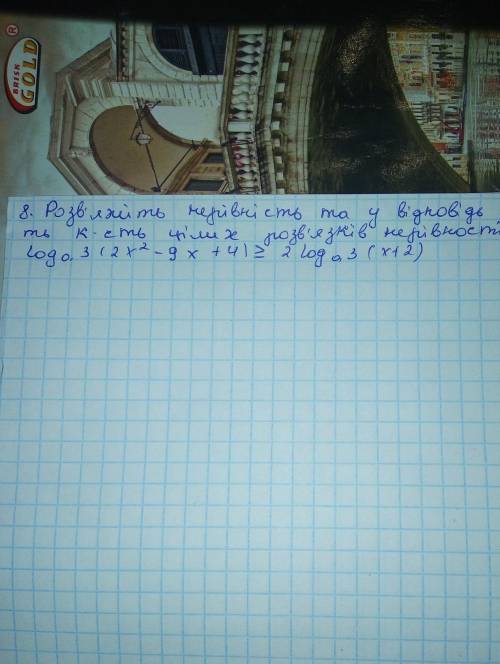 BRISK
GOLD
®
8. Розв'яжіть нерівність та у відповідь
ть к-сть цілих розв'язків нерівності
log₀,3(2x²-9x+4)≥ 2log₀,3(x+2)